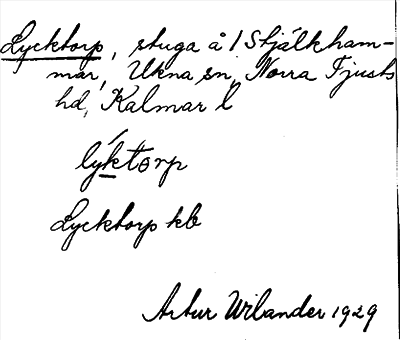 Lycktorp, stuga å 1 Stjälkham-
mar, Ukna sn, Norra Tjusts
hd, Kalmar l
lýktorp
Lycktorp kb
Artur Wilander 1929